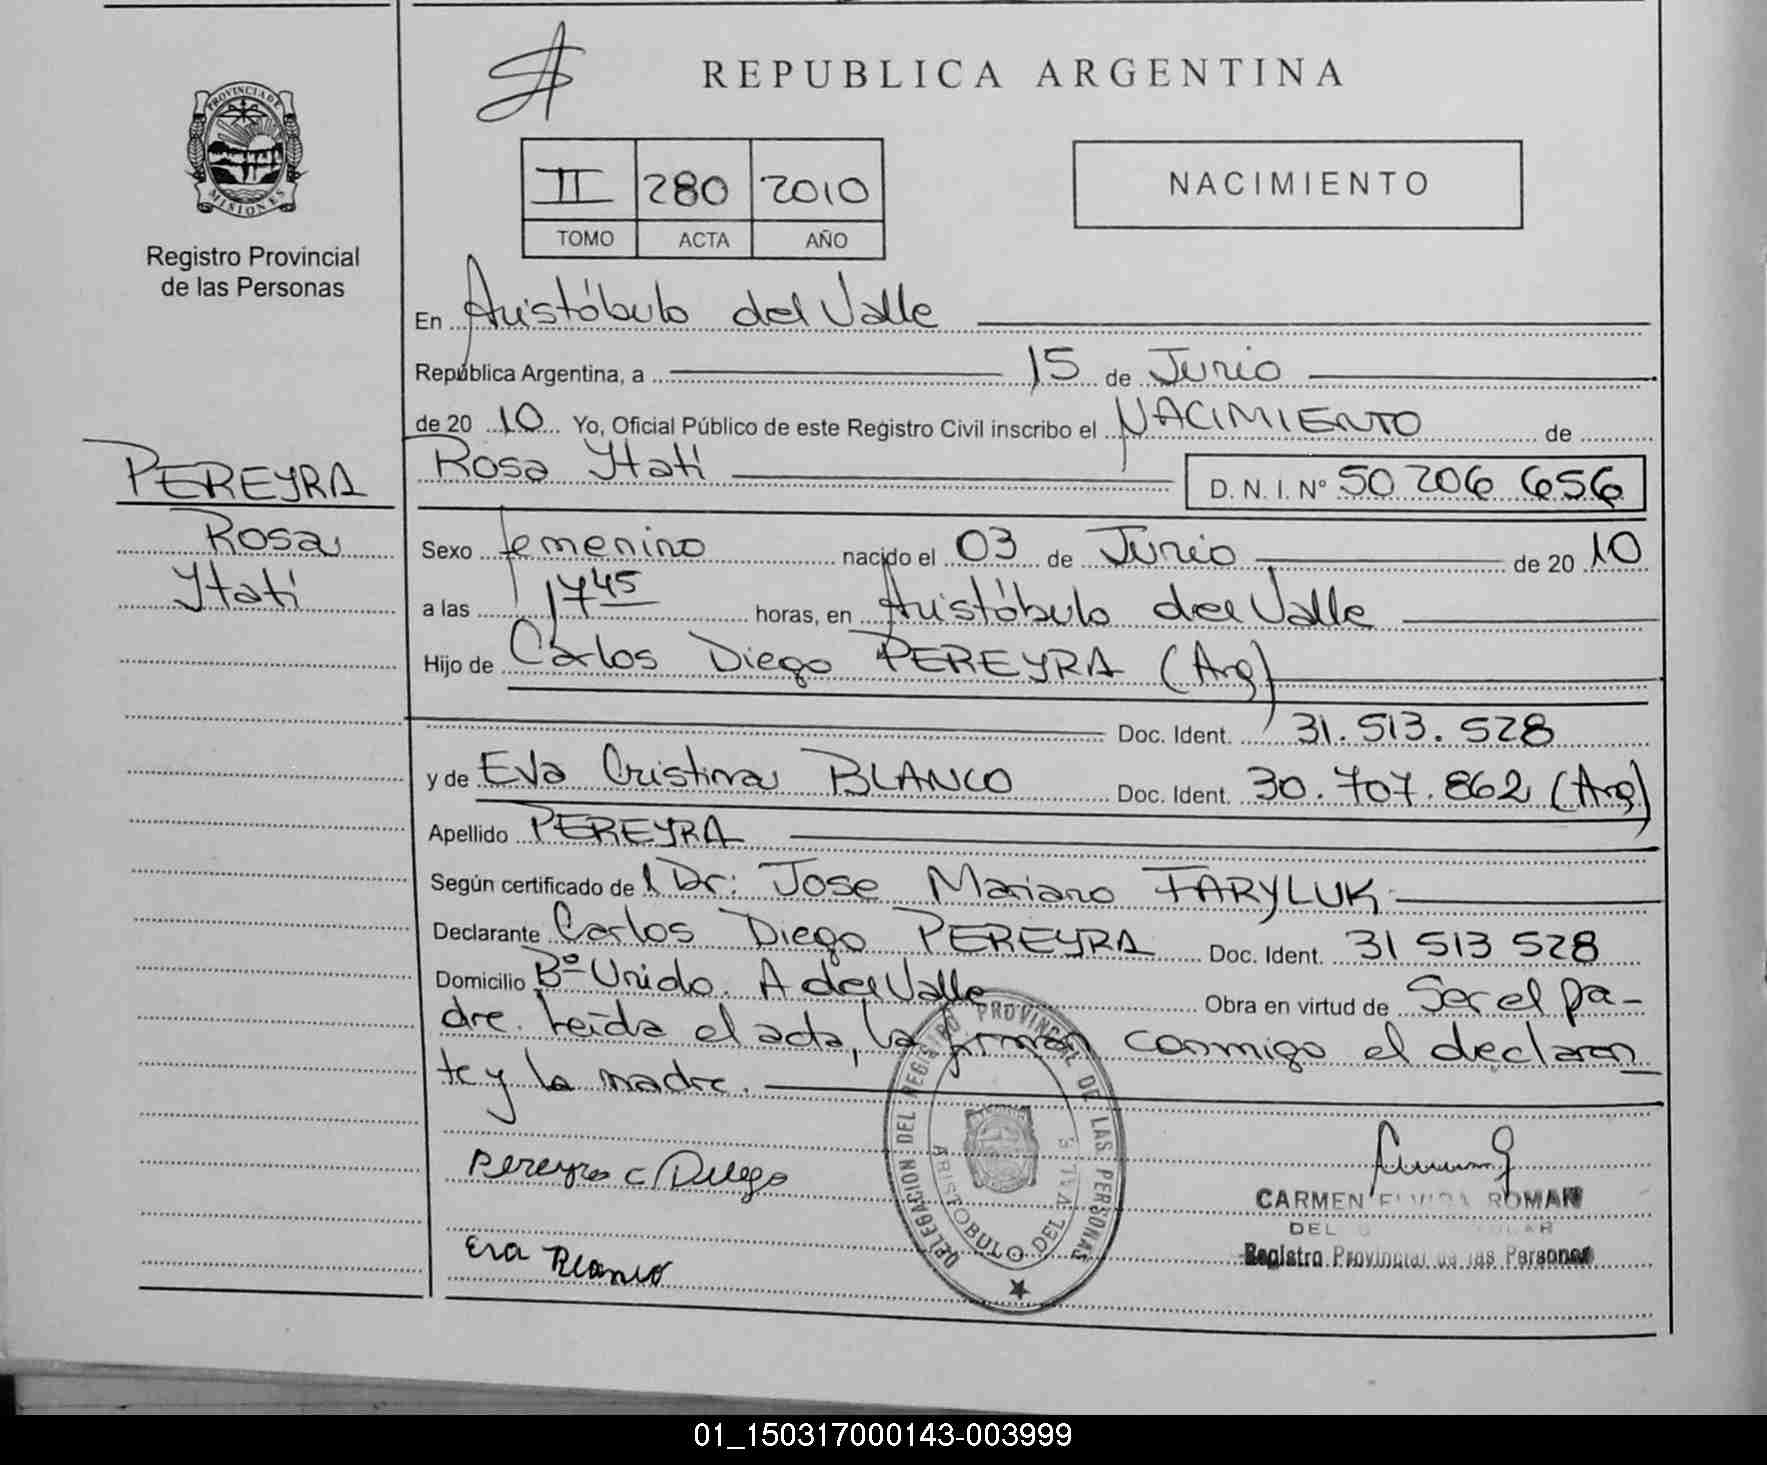 REPUBLICA ARGENTINA
PROVINCIA DE
MISIONES
Registro Provincial
de las Personas
II 280 2010
TOMO ACTA AÑO
NACIMIENTO
En Aristóbulo del Valle
República Argentina, a 15 de Junio
de 20 10 Yo, Oficial Público de este Registro Civil inscribo el NACIMIENTO de
PEREYRA
Rosa
Itatí
Rosa Itatí D. N. I. Nº 50 206 656
Sexo femenino nacido el 03 de Junio de 20 10
a las 17 45 horas, en Aristóbulo del Valle
Hijo de Carlos Diego PEREYRA (Arg)
Doc. Ident. 31.513.528
y de Eva Cristina BLANCO Doc. Ident. 30.707.862 (Arg)
Apellido PEREYRA
Según certificado de Dr: Jose Mariano FARYLUK
Declarante Carlos Diego PEREYRA Doc. Ident. 31 513 528
Domicilio Bº Unido. A del Valle Obra en virtud de Ser el pa-
dre. Leída el acta, la firman conmigo el declaran
te y la madre.
Pereyra C Diego
Eva Blanco
DELEGACION DEL REGISTRO PROVINCIAL DE LAS PERSONAS
ARISTOBULO DEL VALLE
CARMEN ELVIRA ROMAN
Registro Provincial de las Personas
01_150317000143-003999